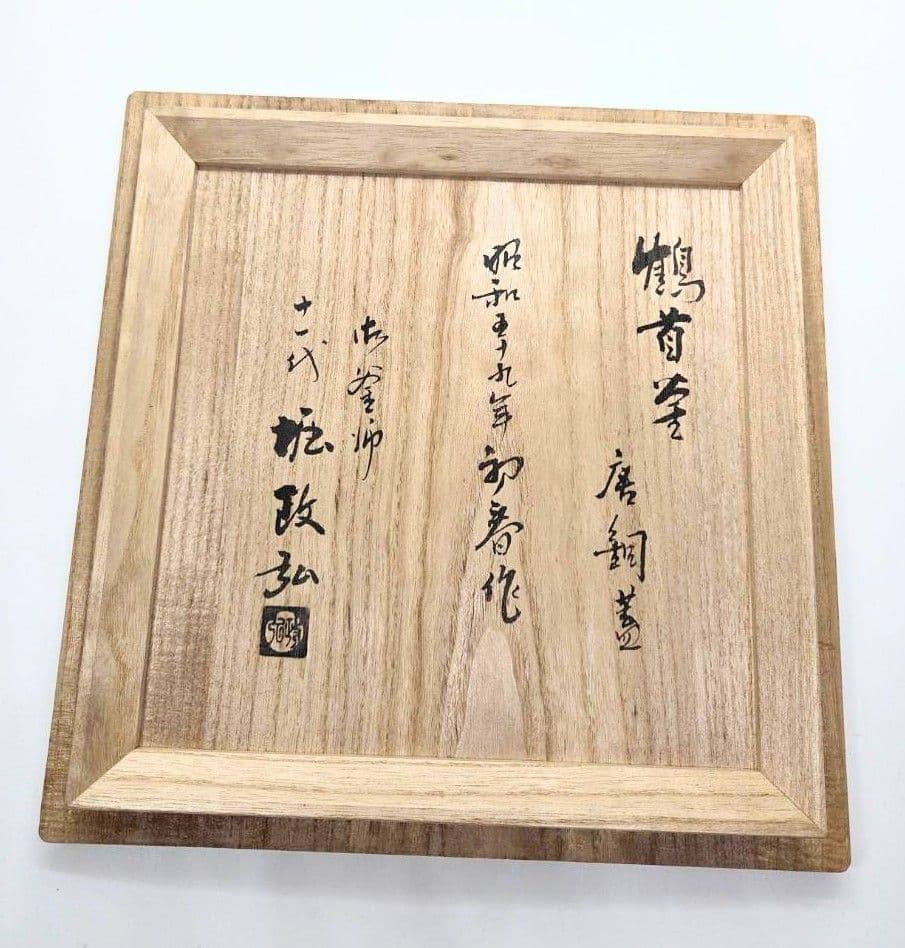 鶴首釜
唐銅蓋
昭和五十九年初春作
御釜師
十一代 堀政弘